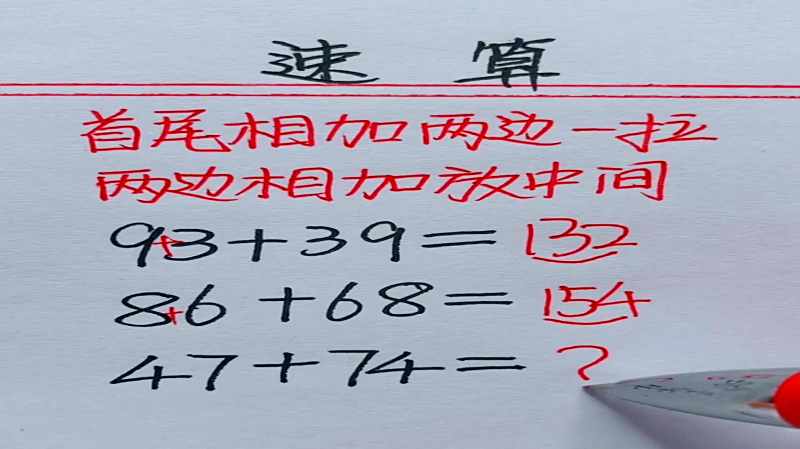 速算
首尾相加两边一拉
两边相加放中间
93+39=132
86+68=154
47+74=?